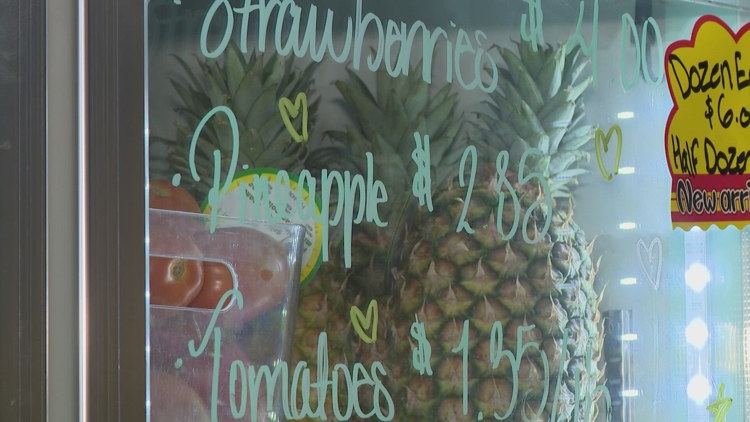 · Strawberries $4.00
· Pineapple $2.85
· Tomatoes $1.35/lb
Dozen
$6.0
Half Dozen
New arri